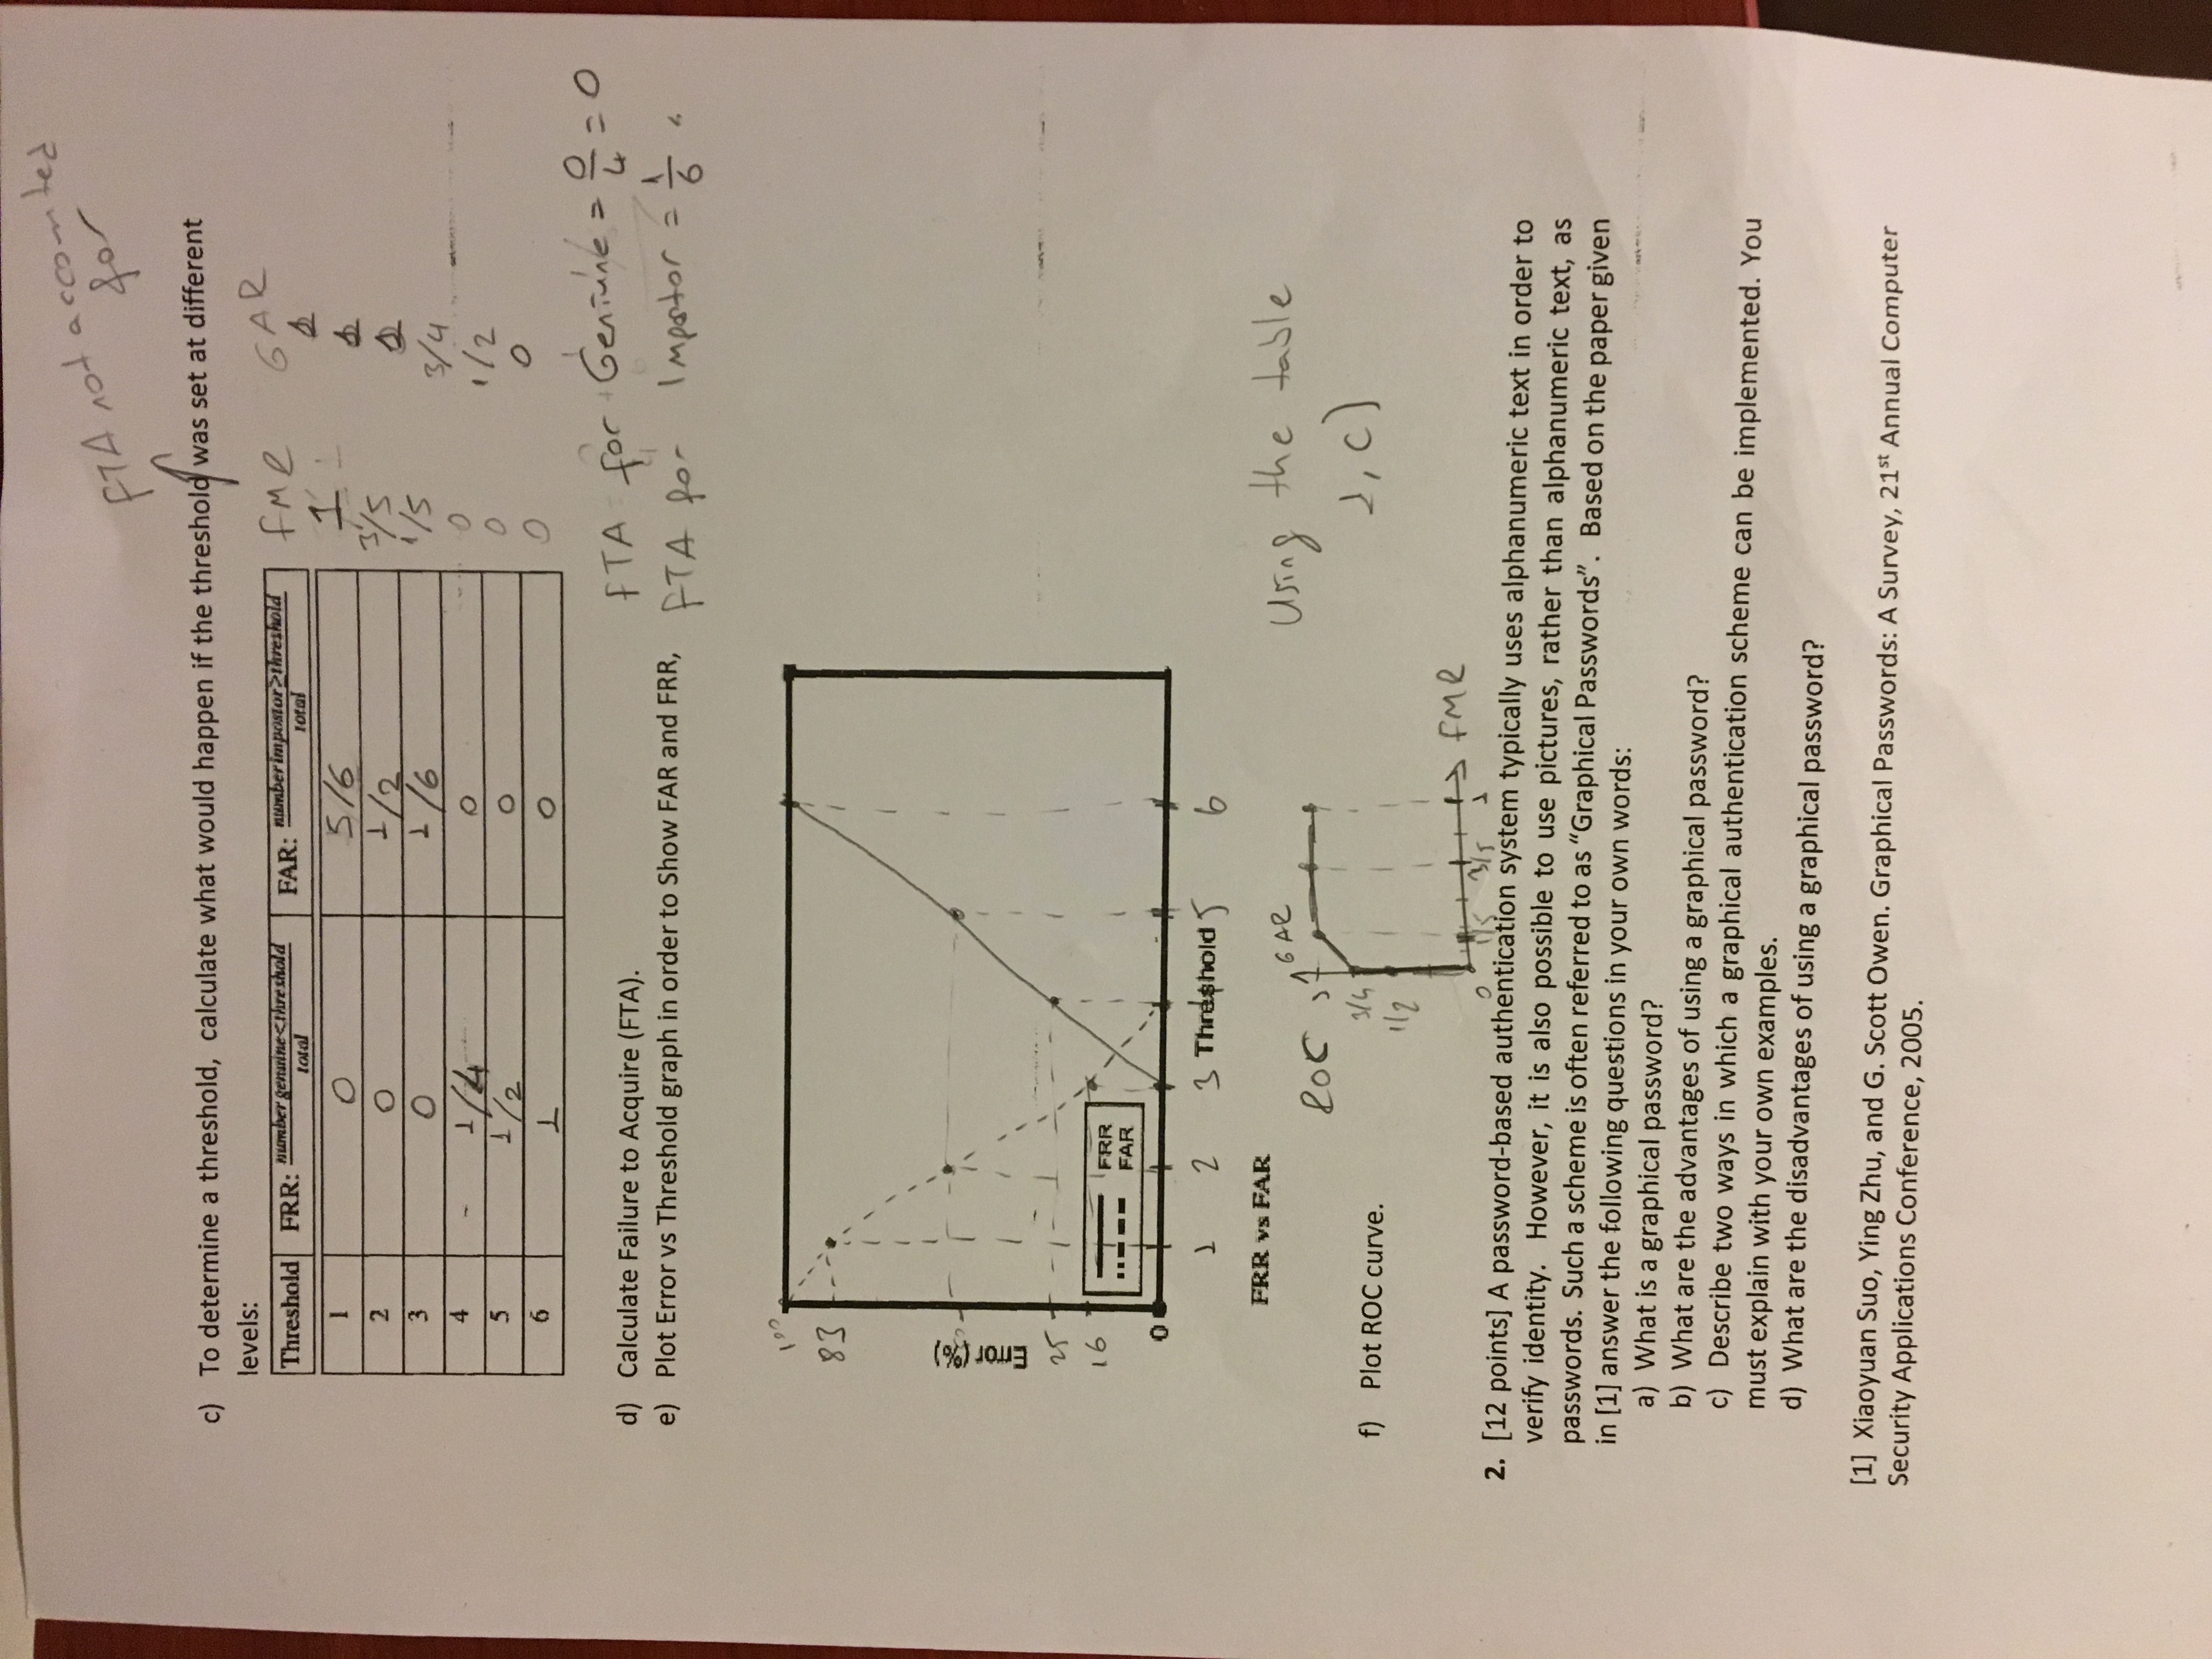 FTA not accounted
for
c) To determine a threshold, calculate what would happen if the threshold was set at different
levels:
Threshold FRR: number genuine<threshold / total FAR: number impostor≥threshold / total FMR GAR
1 0 5/6 1 1
2 0 1/2 3/5 1
3 0 1/6 1/5 1
4 1/4 0 0 3/4
5 1/2 0 0 1/2
6 1 0 0 0
d) Calculate Failure to Acquire (FTA). FTA for Geniune = 0/4 = 0
e) Plot Error vs Threshold graph in order to Show FAR and FRR, FTA for Impostor = 1/6
100
83
Error (%)
25
16
FRR
FAR
0
1 2 3 Threshold 5 6
FRR vs FAR
Using the table
1, c)
ROC GAR
3/4
1/2
0 1/5 3/5 1 FMR
f) Plot ROC curve.
2. [12 points] A password-based authentication system typically uses alphanumeric text in order to
verify identity. However, it is also possible to use pictures, rather than alphanumeric text, as
passwords. Such a scheme is often referred to as “Graphical Passwords”. Based on the paper given
in [1] answer the following questions in your own words:
a) What is a graphical password?
b) What are the advantages of using a graphical password?
c) Describe two ways in which a graphical authentication scheme can be implemented. You
must explain with your own examples.
d) What are the disadvantages of using a graphical password?
[1] Xiaoyuan Suo, Ying Zhu, and G. Scott Owen. Graphical Passwords: A Survey, 21st Annual Computer
Security Applications Conference, 2005.